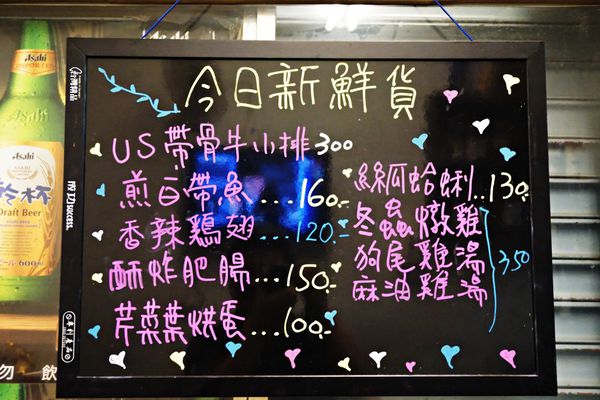 今日新鮮貨
US帶骨牛小排300
煎白帶魚...160.-
香辣鷄翅...120.-
酥炸肥腸...150.-
芹菜葉烘蛋...100.-
絲瓜蛤蜊..130.-
冬蟲燉雞
狗尾雞湯
麻油雞湯
350
Asahi
Asahi
乾杯
Draft Beer
ビール 600ml
勿 飲
SUCCESS